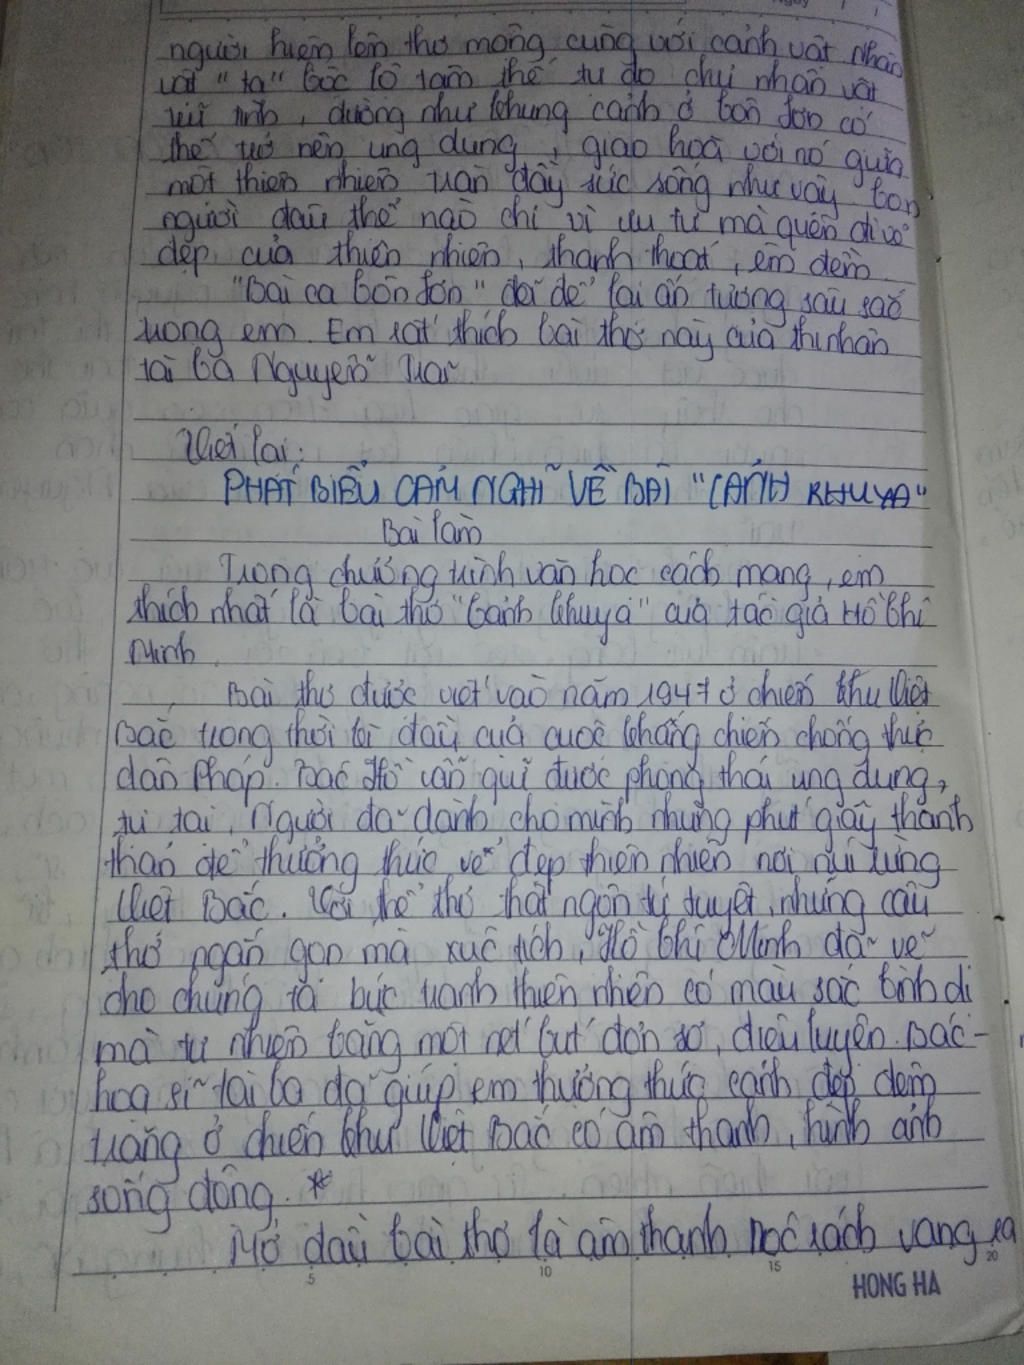 người hiện lên thơ mộng cùng với cảnh vật. Nhân
vật "ta" bộc lộ tâm thế tự do chủ nhân vật
trữ tình, dường như khung cảnh ở Côn Sơn có
thế trở nên ung dung, giao hoà với nó giữa
một thiên nhiên tràn đầy sức sống như vậy con
người đâu thể nào chỉ vì ưu tư mà quên đi vẻ
đẹp của thiên nhiên, thanh thoát, êm đềm
"Bài ca Côn Sơn" đã để lại ấn tượng sâu sắc
trong em. Em rất thích bài thơ này của thi nhân
tài ba Nguyễn Trãi
Viết lại:
PHÁT BIỂU CẢM NGHĨ VỀ BÀI "CẢNH KHUYA"
Bài làm
Trong chương trình văn học cách mạng, em
thích nhất là bài thơ "Cảnh khuya" của tác giả Hồ Chí
Minh
Bài thơ được viết vào năm 1947 ở chiến khu Việt
Bắc trong thời kì đầu của cuộc kháng chiến chống thực
dân Pháp. Bác Hồ vẫn giữ được phong thái ung dung,
tự tại, Người đã dành cho mình những phút giây thanh
thản để thưởng thức vẻ đẹp thiên nhiên nơi núi rừng
Việt Bắc. Với thể thơ thất ngôn tứ tuyệt, những câu
thơ ngắn gọn mà xúc tích, Hồ Chí Minh đã vẽ
cho chúng ta bức tranh thiên nhiên có màu sắc bình dị
mà tự nhiên bằng một nét bút đơn sơ, điêu luyện. Bác-
hoạ sĩ tài ba đã giúp em thưởng thức cảnh đẹp đêm
trăng ở chiến khu Việt Bắc có âm thanh, hình ảnh
sống động. *
Mở đầu bài thơ là âm thanh róc rách vang xa
5 10 15 20
HONG HA